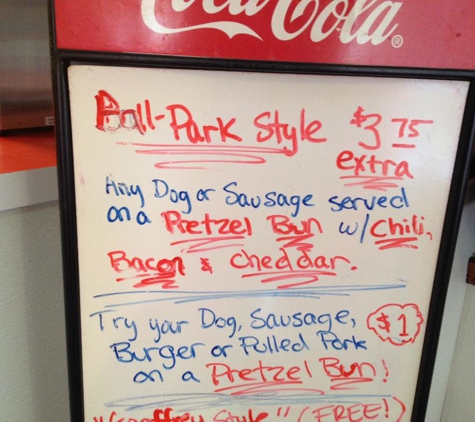 Coca-Cola®
Ball-Park Style $3.75
extra
Any Dog or Sausage served
on a Pretzel Bun w/ Chili,
Bacon & Cheddar.
Try your Dog, Sausage, $1
Burger or Pulled Pork
on a Pretzel Bun!
"Geoffrey Style" (FREE!)